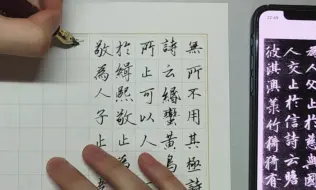 無所不用其極
詩云緡蠻黃鳥
所止可以人
於緝熙敬止為
敬為人子止
為人父止於慈與國
人交止於信詩云瞻
彼淇澳菉竹猗猗有